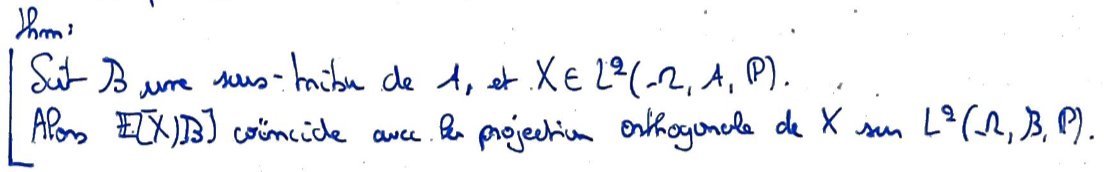 Thm:
Soit B une sous-tribu de A, et X ∈ L²(Ω, A, P).
Alors E[X|B] coïncide avec la projection orthogonale de X sur L²(Ω, B, P).